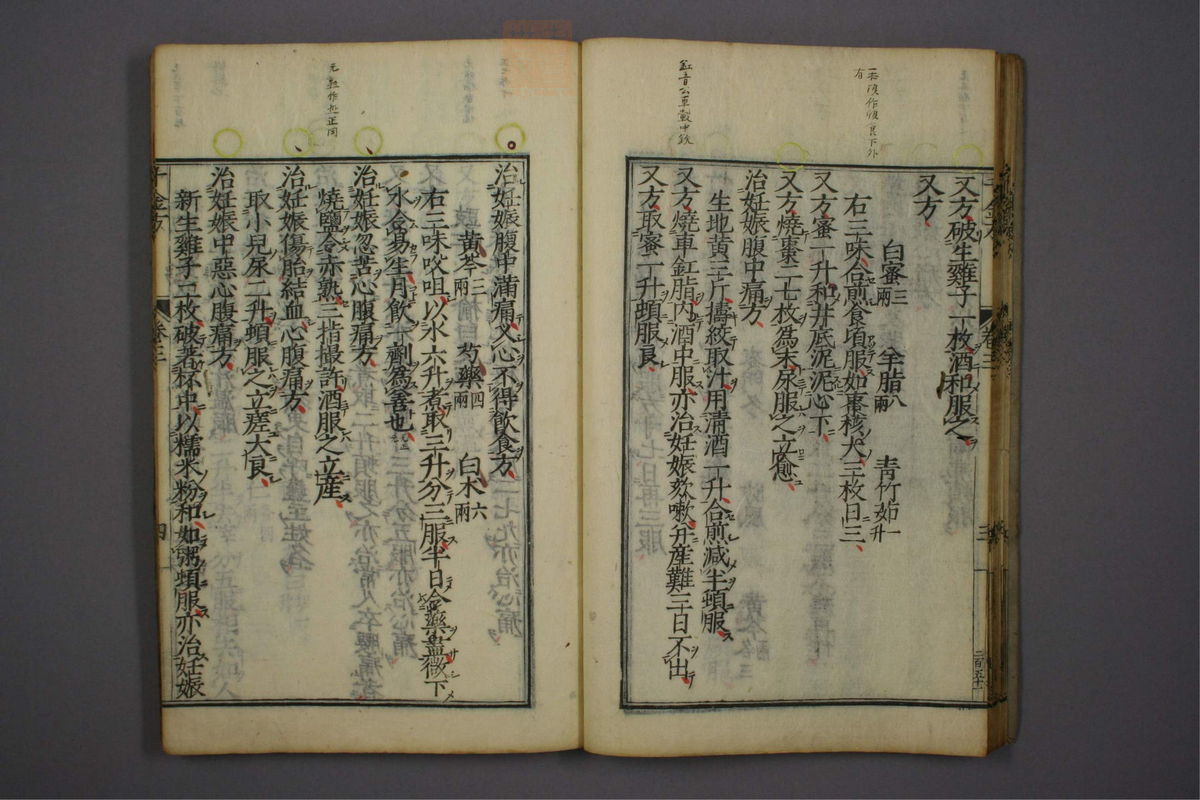 又方破生雞子一枚酒和服之
又方
白蜜三兩 羊脂八兩 青竹茹一升
右三味合煎食頃服如棗核大三枚日三
又方蜜一升和井底泥泥心下
又方燒棗二七枚爲末尿服之立愈
治妊娠腹中痛方
生地黃三斤擣絞取汁用清酒一升合煎減半頓服
又方燒車釭脂內酒中服亦治妊娠欬嗽并產難三日不出
又方取蜜一升頓服良
治妊娠腹中滿痛叉心不得飲食方
黃芩三兩 芍藥四兩 白朮六兩
右三味㕮咀以水六升煮取三升分三服半日令藥盡微下
水令易生月飲一劑爲善也
治妊娠忽苦心腹痛方
燒鹽令赤熟三指撮許酒服之立産
治妊娠傷胎結血心腹痛方
取小兒尿二升頓服之立差大良
治妊娠中惡心腹痛方
新生雞子二枚破著杯中以糯米粉和如粥頓服亦治妊娠
卷三
三
二百五十二
釭音公車轂中鐵
四